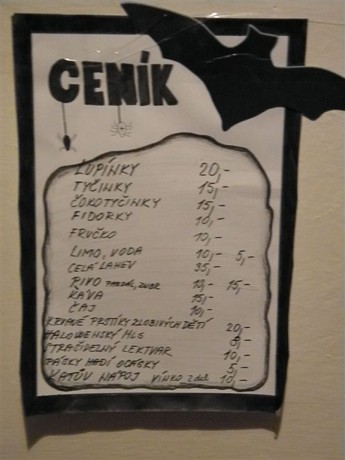 CENÍK
LUPÍNKY 20,-
TYČINKY 15,-
ČOKOTYČINKY 15,-
FIDORKY 10,-
FRUČKO 10,-
LIMO, VODA 10,- 5,-
CELÁ LAHEV 35,-
PIVO 10,- 15,-
KÁVA 15,-
ČAJ 10,-
KRVAVÉ PRSTÍKY ZLOBIVÝCH DĚTÍ 20,-
HALOWENSKÝ 8,-
STRAŠIDELNÝ LEKTVAR 10,-
HADÍ OCÁSKY 5,-
KATŮV NÁPOJ VÍNKO 2dcl 10,-